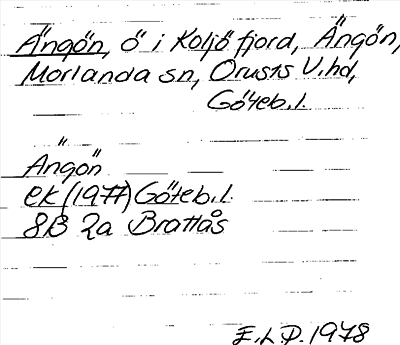 Ängön, ö i Koljö fjord, Ängön,
Morlanda sn, Orusts V. hd,
Göteb. l.
Ängön
ek (1977) Göteb. l.
8B 2a Brattås
E.L.P. 1978